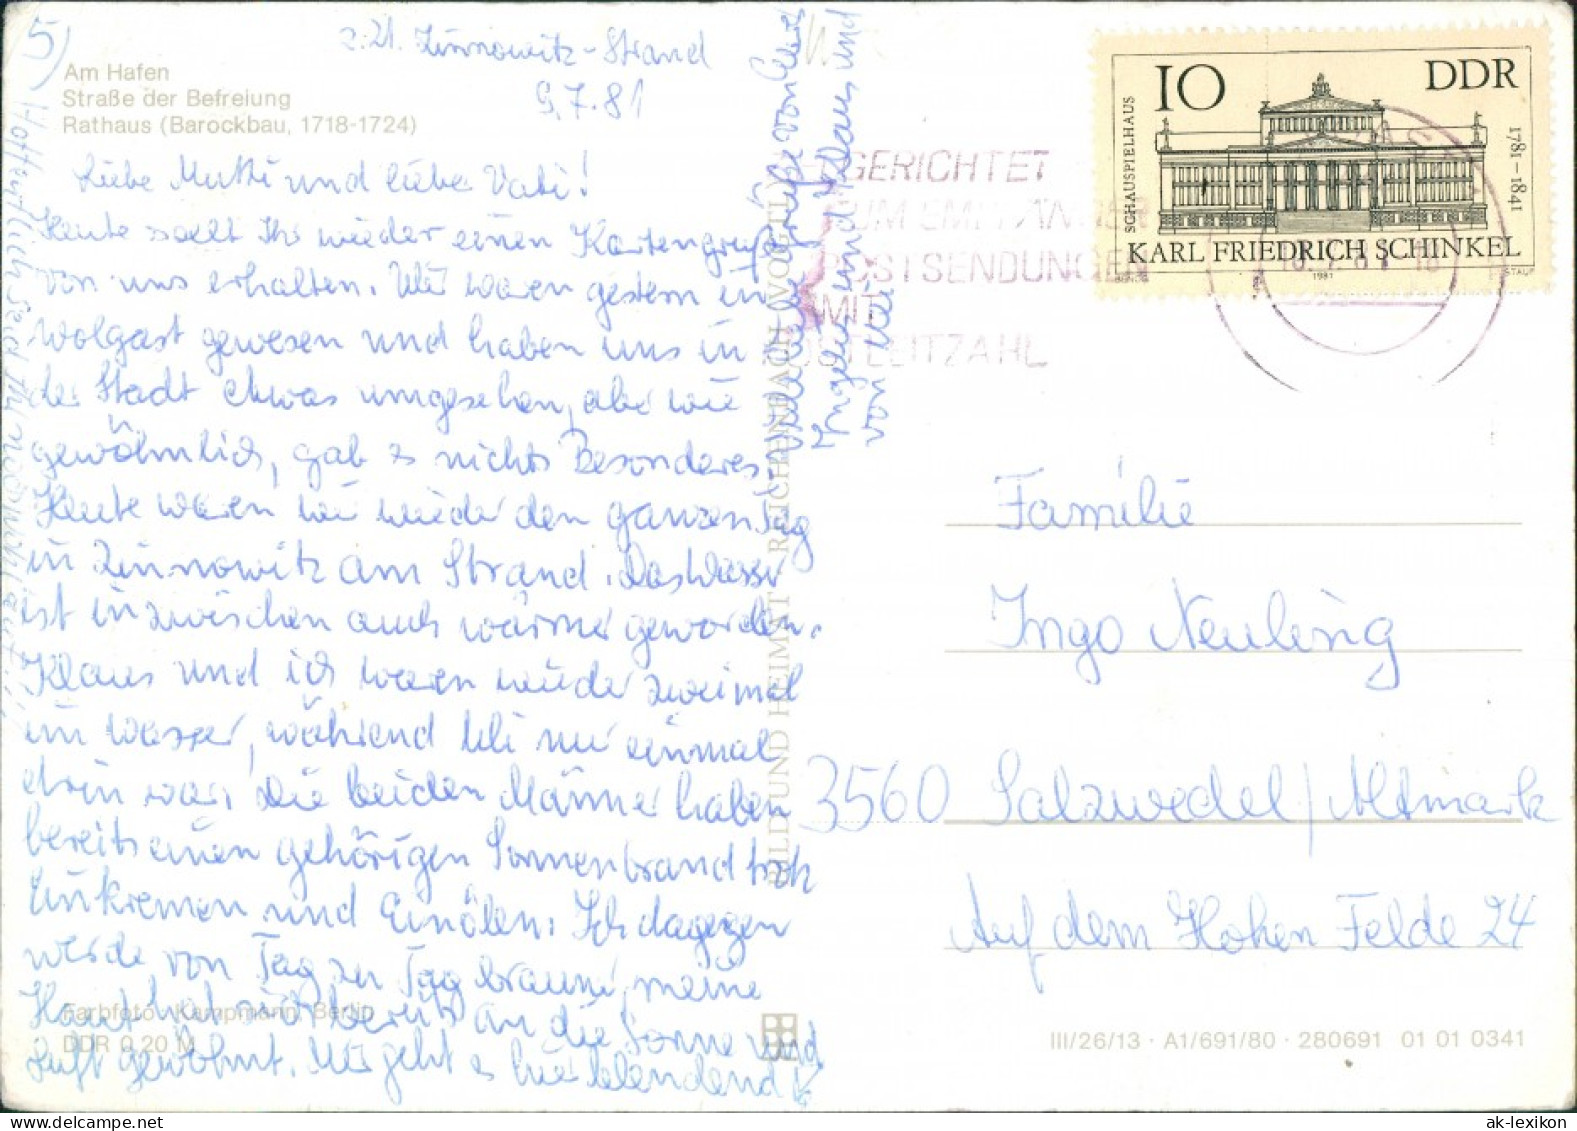 5)
z. Zt. Zinnowitz-Strand
9.7.81
Am Hafen
Straße der Befreiung
Rathaus (Barockbau, 1718-1724)
Liebe Mutti und lieber Vati!
Heute sollt Ihr wieder einen Kartengruß
von uns erhalten. Wir waren gestern in
Wolgast gewesen und haben uns in
der Stadt etwas umgesehen, aber wie
gewöhnlich, gab es nichts Besonderes.
Heute waren wir wieder den ganzen Tag
in Zinnowitz am Strand. Das Wasser
ist inzwischen auch wärmer geworden.
Klaus und ich waren wieder zweimal
im Wasser, während Uli nur einmal
drin war. Die beiden Männer haben
bereits einen gehörigen Sonnenbrand trotz
Einkremen und Einölen. Ich dagegen
werde von Tag zu Tag brauner, meine
Haut hat sich bereits an die Sonne und
Luft gewöhnt. Mir geht es hier blendend
Hoffentlich seid Ihr noch
Viele liebe Grüße von Eurer
Ingelis und Klaus und
von Uli
Farbfoto: Kampmann, Berlin
DDR 0,20 M
BILD UND HEIMAT REICHENBACH (VOGTL)
IO DDR
SCHAUSPIELHAUS
1781-1841
KARL FRIEDRICH SCHINKEL
1981
GERICHTET
ZUM EMPFÄNGER
POSTSENDUNGEN
MIT
POSTLEITZAHL
Familie
Ingo Neuling
3560 Salzwedel / Altmark
Auf dem Hohen Felde 24
III/26/13 · A1/691/80 · 280691 01 01 0341
ak-lexikon